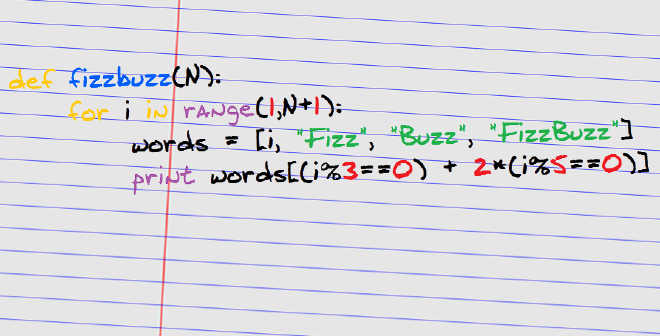 def fizzbuzz(N):
for i in range(1,N+1):
words = [i, "Fizz", "Buzz", "FizzBuzz"]
print words[(i%3==0) + 2*(i%5==0)]